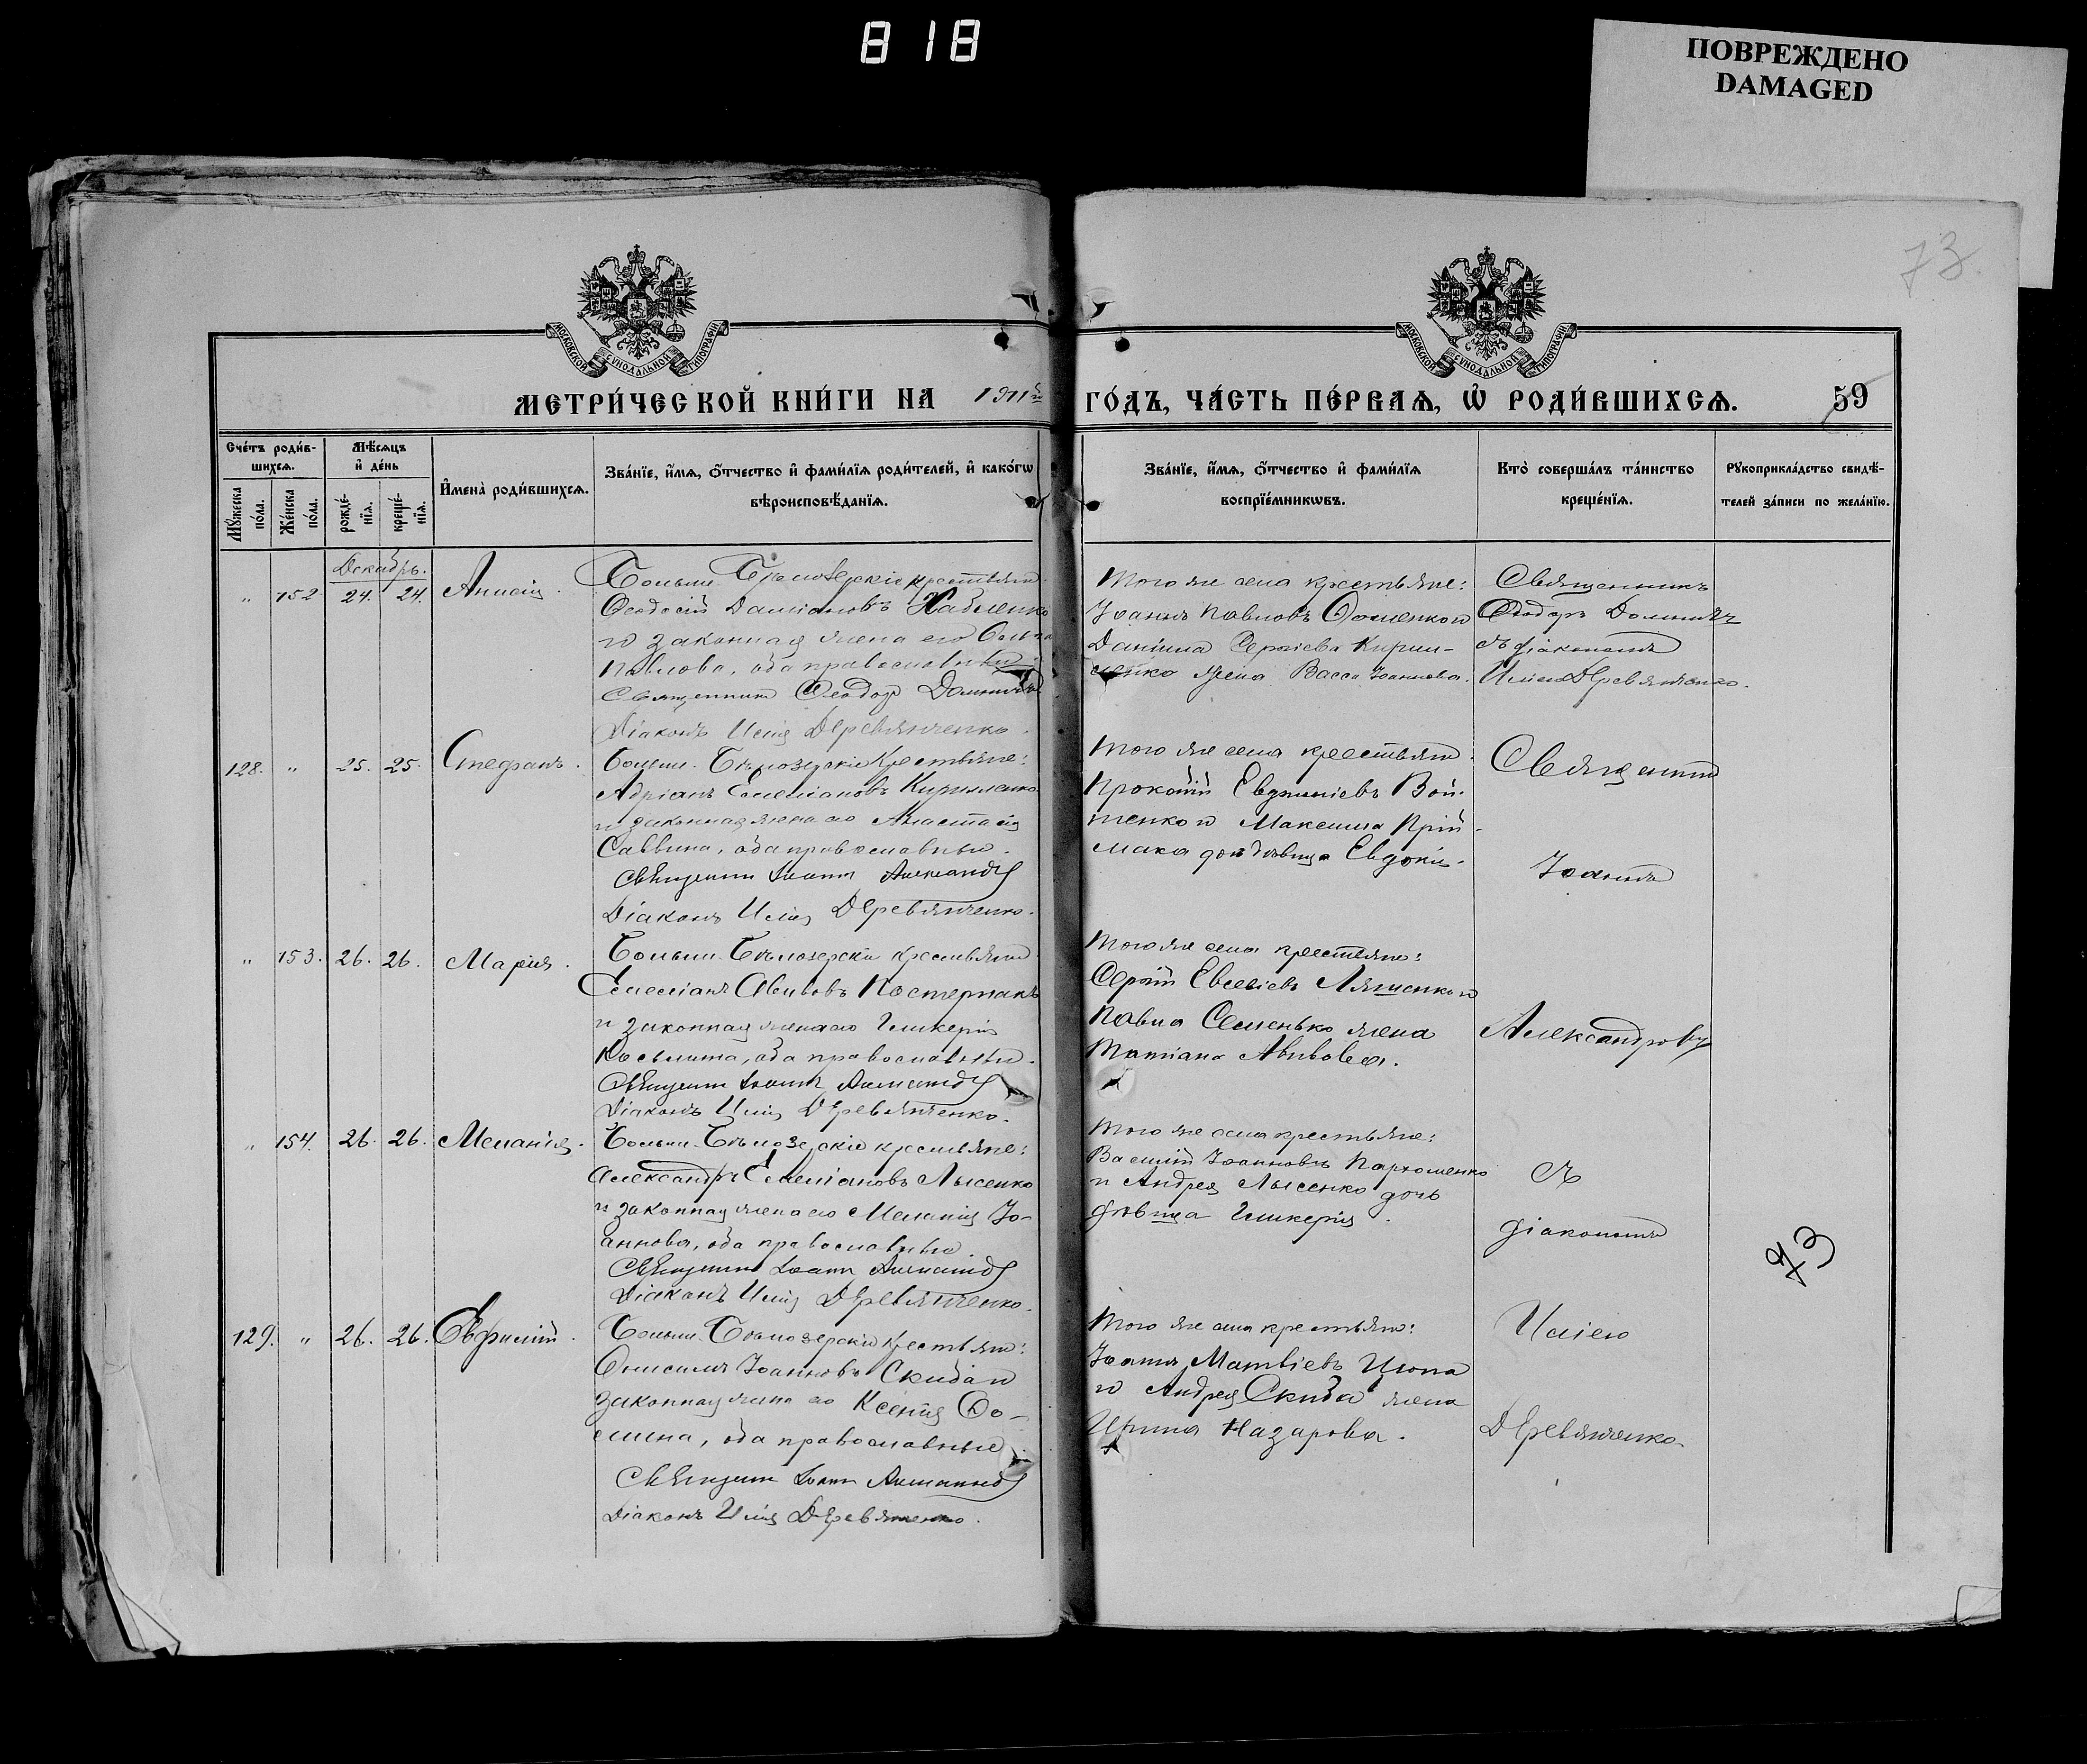 818
ПОВРЕЖДЕНО
DAMAGED
73
МОСКОВСКОЙ СѴНОДАЛЬНОЙ ТИПОГРАФІИ
МОСКОВСКОЙ СѴНОДАЛЬНОЙ ТИПОГРАФІИ
МЕТРИ́ЧЕСКОЙ КНИ́ГИ НА 1911й ГО́ДЪ, ЧА́СТЬ ПЕ́РВАѦ, Ѡ҆ РОДИ́ВШИХСѦ. 59
Сче́тъ роди́в-
шихсѧ.
Мꙋ́жеска по́ла.
Же́нска по́ла.
Мѣ́сѧцъ
и҆ де́нь
рожде́-
нїѧ.
креще́-
нїѧ.
И҆мена̀ роди́вшихсѧ.
Зва́нїе, и҆́мѧ, ѻ҆́тчество и҆ фами́лїѧ роди́телей, и҆ како́гѡ
вѣроисповѣ́данїѧ.
Зва́нїе, и҆́мѧ, ѻ҆́тчество и҆ фами́лїѧ
воспрїе́мникѡвъ.
Кто̀ соверша́лъ та́инство
креще́нїѧ.
Рꙋкоприкла́дство свидѣ́-
телей за́писи по жела́нїю.
Декабрь.
" 152 24. 24. Анисія.
Больше-Бѣлозерскіе крестьяне
Ѳеодосій Даміановъ
и законная жена его
Павлова, оба православные.
Священникъ Ѳеодоръ
Діаконъ Илія Деревянченко.
Того же села крестьяне:
Іоаннъ Павловъ и
Даніила Сергіева Кирил-
ченко жена Васса Іоаннова.
Священникъ
Ѳеодоръ
съ діакономъ
Иліею Деревянченко.
128. " 25. 25. Стефанъ.
Больше-Бѣлозерскіе крестьяне:
Адріанъ Емеліановъ Кириленко
и законная жена его Анастасія
Саввина, оба православные.
Священникъ Іоаннъ Александровъ
Діаконъ Илія Деревянченко.
Того же села крестьяне
Прокопій Евдокиміевъ Вой-
тенко и Максима Прій-
мака дочь дѣвица Евдокія.
Священникъ
Іоаннъ
" 153. 26. 26. Марія.
Больше-Бѣлозерскіе крестьяне
Емеліанъ Авивовъ Пастернакъ
и законная жена его Гликерія
Косьмина, оба православные.
Священникъ Іоаннъ Александровъ
Діаконъ Илія Деревянченко.
Того же села крестьяне:
Сергій Евсевіевъ Ляшенко и
Павла Семенько жена
Татіана Авивова.
Александровъ
" 154. 26. 26. Меланія.
Больше-Бѣлозерскіе крестьяне:
Александръ Емеліановъ Лысенко
и законная жена его Меланія Іо-
аннова, оба православные.
Священникъ Іоаннъ Александровъ
Діаконъ Илія Деревянченко.
Того же села крестьяне:
Василій Іоанновъ Пархоменко
и Андрея Лысенко дочь
дѣвица Гликерія.
съ
діакономъ
73
129. " 26. 26. Евфимій.
Больше-Бѣлозерскіе крестьяне:
Онисимъ Іоанновъ Скиба и
законная жена его Ксенія Ѳо-
мина, оба православные.
Священникъ Іоаннъ Александровъ
Діаконъ Илія Деревянченко.
Того же села крестьяне:
Іоаннъ Матвіевъ Цюпа
и Андрея Скиба жена
Ирина Назарова.
Иліею
Деревянченко.